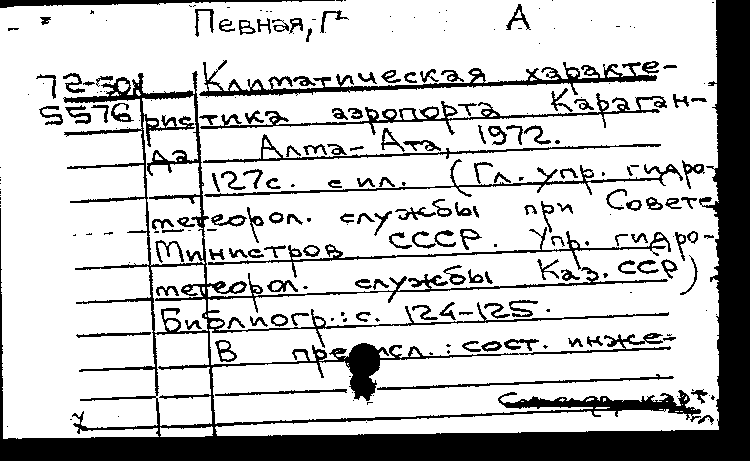 Певная, Г А
72-50к Климатическая характе-
5576 ристика аэропорта Караган-
да Алма-Ата, 1972.
127с. с ил. (Гл. упр. гидро-
метеорол. службы при Совете
Министров СССР. Упр. гидро-
метеорол. службы Каз. ССР)
Библиогр.: с. 124-125.
В сост. инже-
карт.